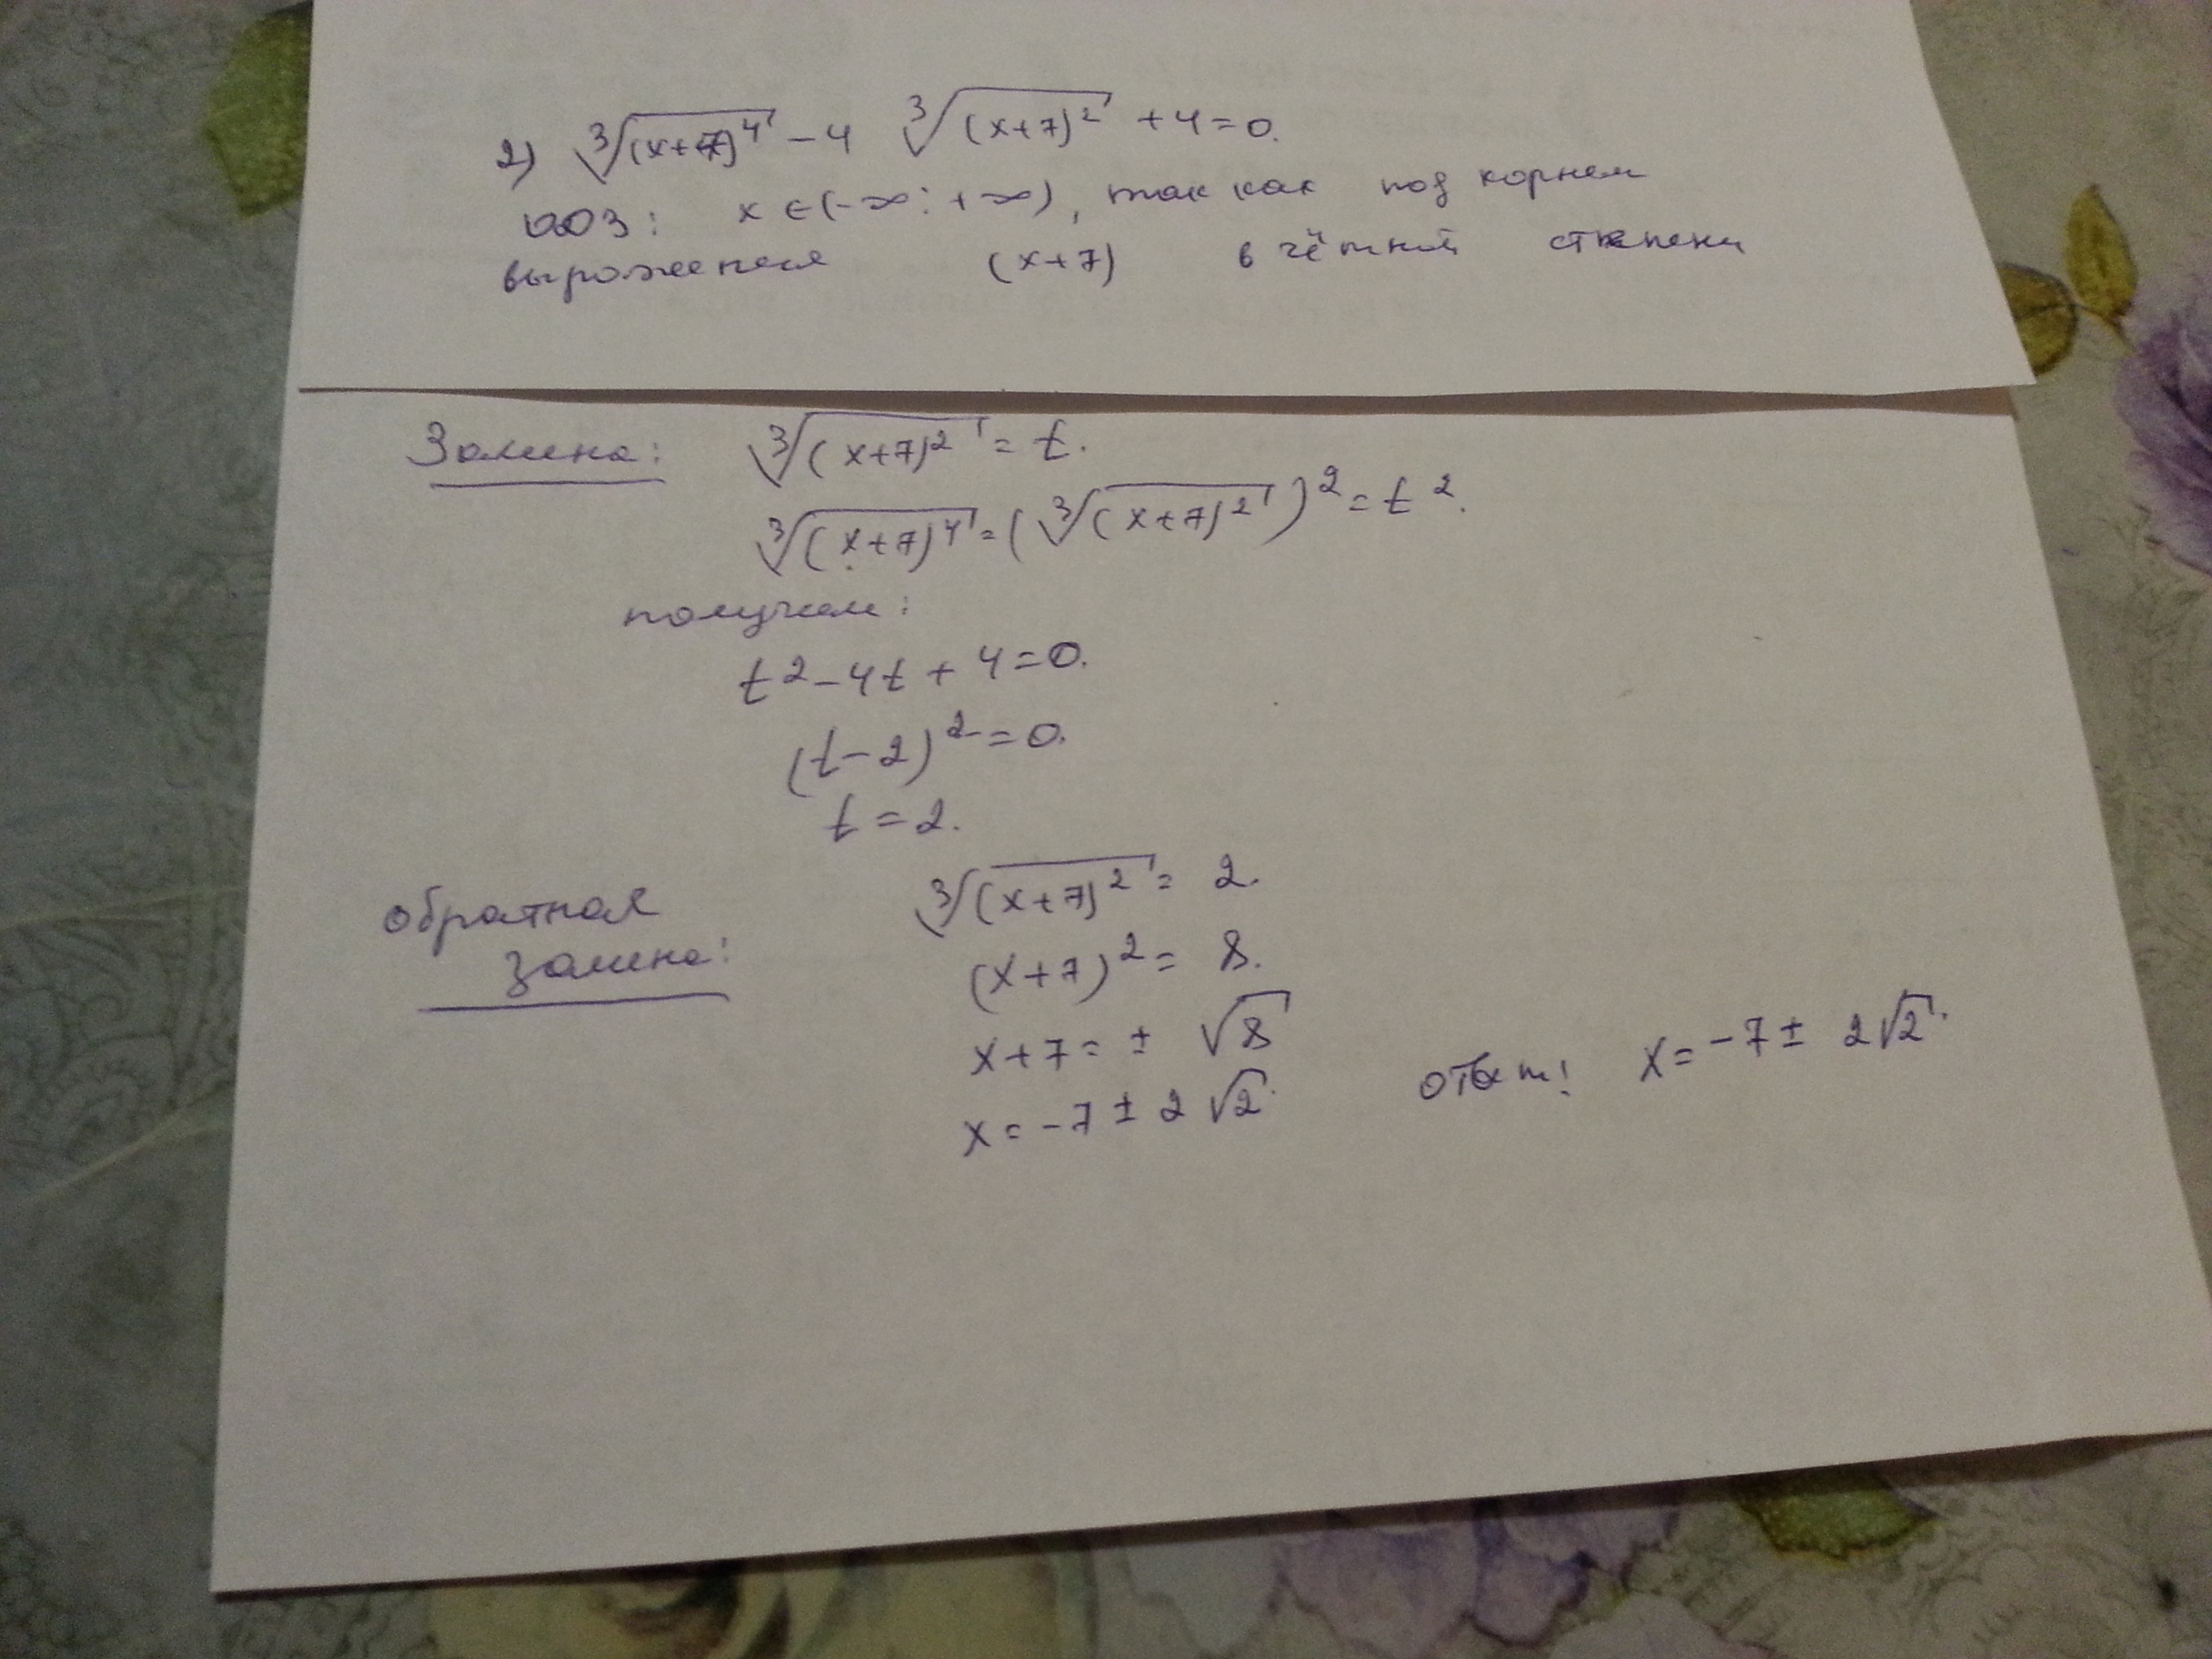 2) ∛(x+7)⁴ - 4 ∛(x+7)² + 4 = 0.
ОДЗ: x ∈ (-∞; +∞), так как под корнем
выражения (x+7) в чётной степени
Замена: ∛(x+7)² = t.
∛(x+7)⁴ = (∛(x+7)²)² = t².
получаем:
t² - 4t + 4 = 0.
(t - 2)² = 0.
t = 2.
Обратная ∛(x+7)² = 2.
замена: (x+7)² = 8.
x+7 = ± √8
x = -7 ± 2√2. Ответ: x = -7 ± 2√2.